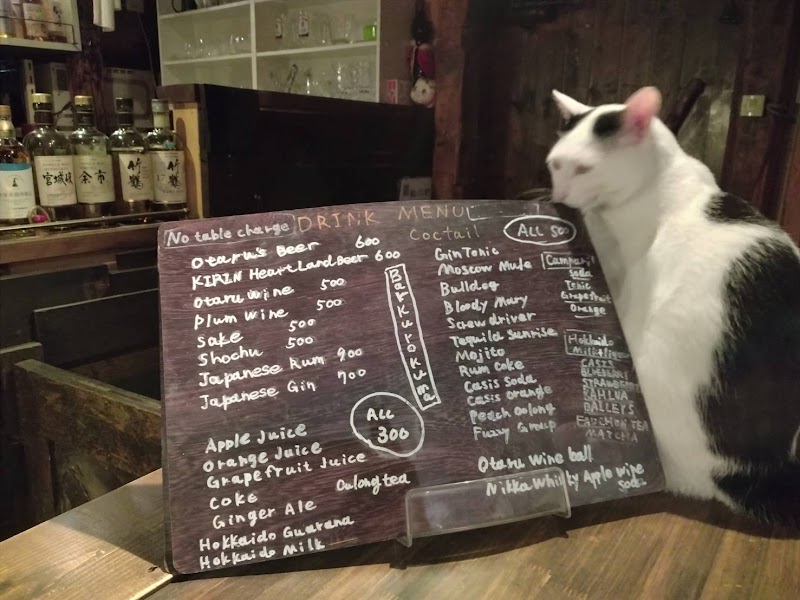 宮城峡
余市
竹鶴
竹鶴
DRINK MENU
No table charge
Otaru's Beer 600
KIRIN Heart Land Beer 600
Otaru Wine 500
Plum Wine 500
Sake 500
Shochu 500
Japanese Rum 900
Japanese Gin 700
ALL 300
Apple Juice
Orange Juice
Grapefruit Juice
Coke
Oolong tea
Ginger Ale
Hokkaido Guarana
Hokkaido Milk
Bar Kurokuma
Coctail
ALL 500
Gin Tonic
Moscow Mule
Bulldog
Bloody Mary
Screwdriver
Tequila Sunrise
Mojito
Rum Coke
Casis Soda
Casis Orange
Peach Oolong
Fuzzy Group
Campari
Soda
Tonic
Grapefruit
Orange
Hokkaido
Milk
CASIS
BLUEBERRY
STRAWBERRY
KAHLUA
BAILEYS
FAUCHON TEA
MATCHA
Otaru Wine ball
Nikka Whisky Apple wine
Soda